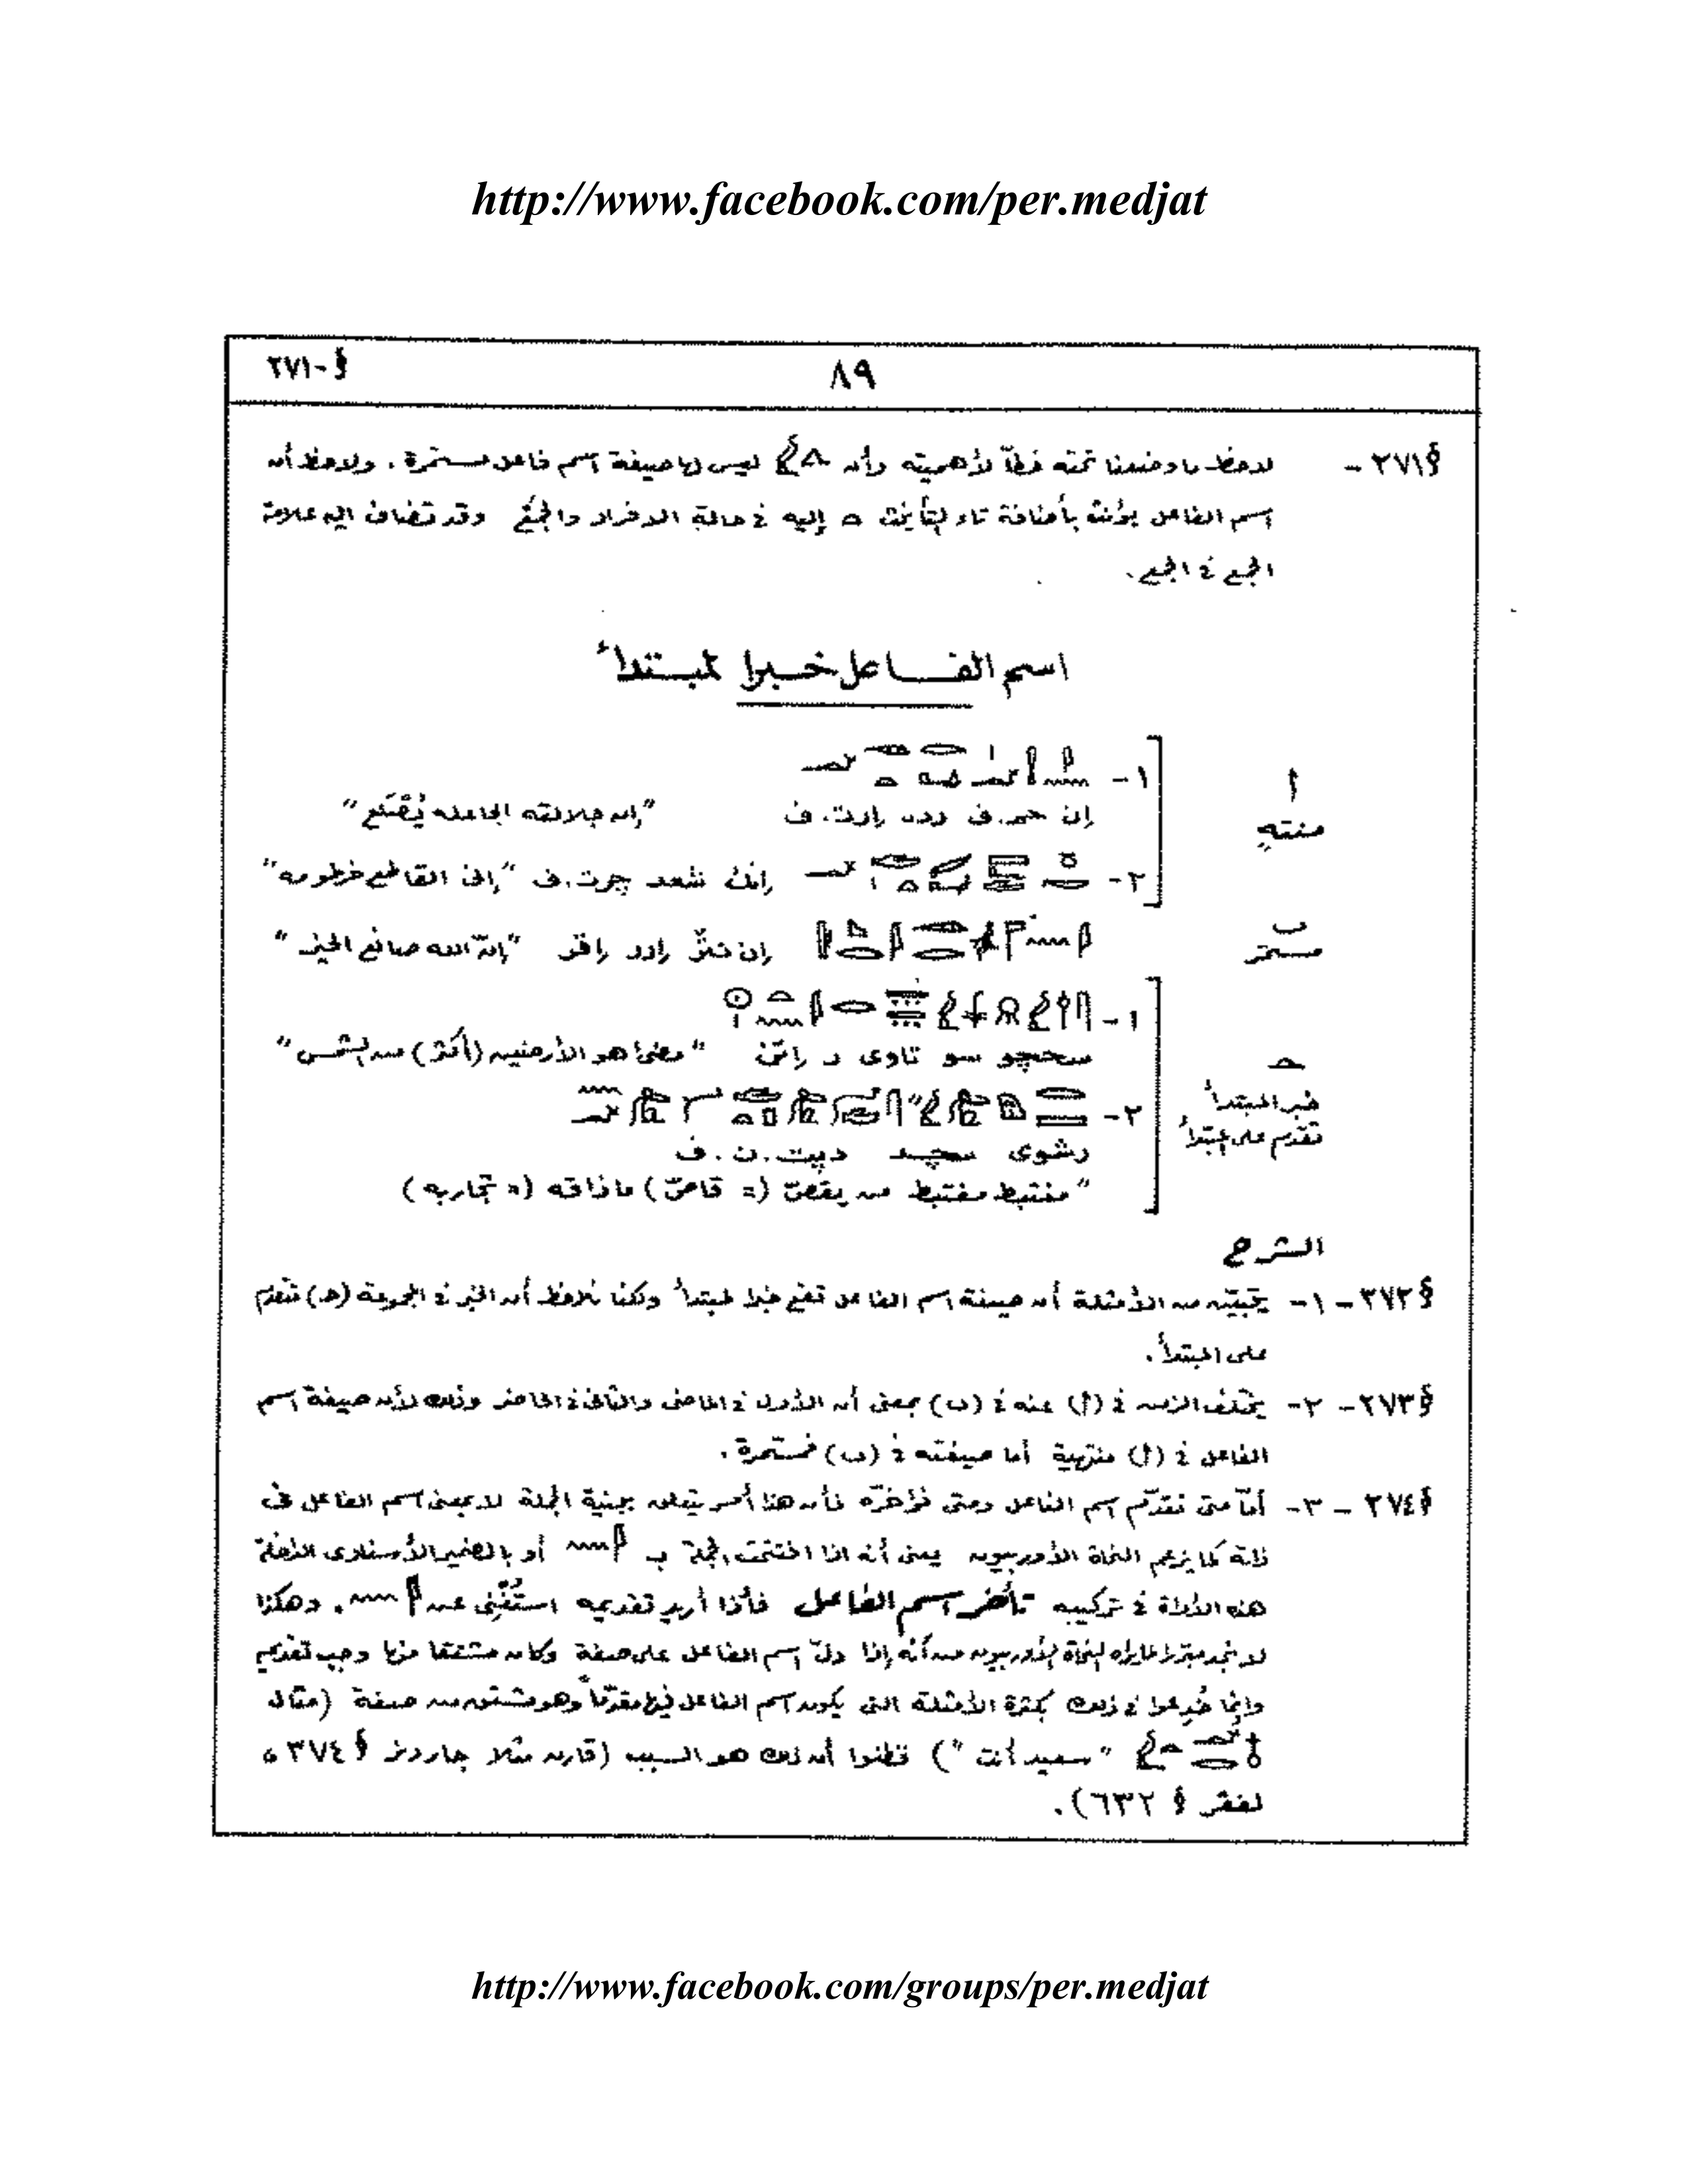 http://www.facebook.com/per.medjat
§-٢٧١
٨٩
§٢٧١ - لاحظ ما وضعنا تحته خطاً لأهميته وأن ليس لها صيغة اسم فاعل مستمرة . ولاحظ أن
اسم الفاعل يؤنث بأضافة تاء التأنيث إليه في حالة الافراد والجمع وقد تضاف اليه علامة
الجمع في الجمع .
اسم الفاعل خبرا لمبتدأ
أ
منتهٍ
١-
إن حم.ف ردد إرت.ف "إن جلالته الجاعله يُصْنَع"
٢- إنك شعد چرت.ف "إنى القاطع خرطومه"
ب
مستمر
إن نتر إرر إقر "إنّ الله صانع الخير"
حـ
خبر المبتدأ
تقدم على المبتدأ
١-
سحچو سو تاوى ر إتن "مضئ هو الأرضين (أكثر) من الشمس"
٢-
رشوى سچد دپت.ن.ف
"مغتبط مغتبط من يقص (= قاصّ) ماذاقه (= تجاربه)
الشرح
§٢٧٢ - ١- يتبيّن من الأمثلة أن صيغة اسم الفاعل تقع خبرا لمبتدأ ولكنا نلاحظ أن الخبر في المجموعة (حـ) تقدم
على المبتدأ .
§٢٧٣ - ٢- يختلف الزمن في (أ) عنه في (ب) بمعنى أن الأول في الماضى والثانى في الحاضر وذلك لأن صيغة اسم
الفاعل في (أ) منتهية أما صيغته في (ب) فمستمرة .
§٢٧٤ - ٣- أمّا متى نقدّم اسم الفاعل ومتى نؤخرّه فأن هذا أمر يتعلق ببنية الجملة لا بمعنى اسم الفاعل فى
ذاته كما يزعم النحاة الأوربيون بمعنى أنه اذا افتتحت الجملة ب أو بالضمير الأسنادى الداخلة
هذه الأداة في تركيبه تأخر اسم الفاعل فأذا أريد تقديمه استُغْنِى عن . وهكذا
لا نجد مبررا لما يراه النحاة الأوربيون من أنه إذا دلّ اسم الفاعل على صفة وكان مشتقا منها وجب تقديمه
وإنما خُدِعوا في ذلك بكثرة الأمثلة التى يكون اسم الفاعل فيها مقدّماً وهو مشتق من صفة (مثال
"سعيد أنت") فظنوا أن ذلك هو السبب (قارن مثلا جاردنر § ٣٧٤ ،
لفڤر § ٦٣٢) .
http://www.facebook.com/groups/per.medjat